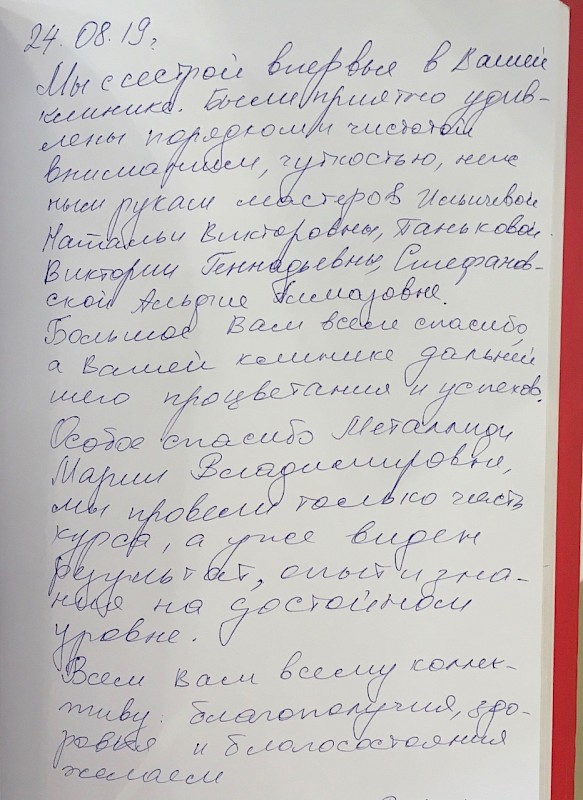 24.08.19г.
Мы с сестрой впервые в Вашей
клинике. Были приятно удив-
лены порядком и чистотой
вниманием, чуткостью, неж
ным рукам мастеров Ильичевой
Натальи Викторовны, Паньковой
Виктории Геннадьевны, Стефанов-
ской Альфие
Большое Вам всем спасибо,
а Вашей клинике дальней
шего процветания и успехов.
Особое спасибо Металлиди
Марии Владимировне,
мы провели только часть
курса, а уже виден
результат, опыт и зна-
ния на достойном
уровне.
Всем Вам всему коллек-
тиву благополучия, здо-
ровья и благосостояния
желаем